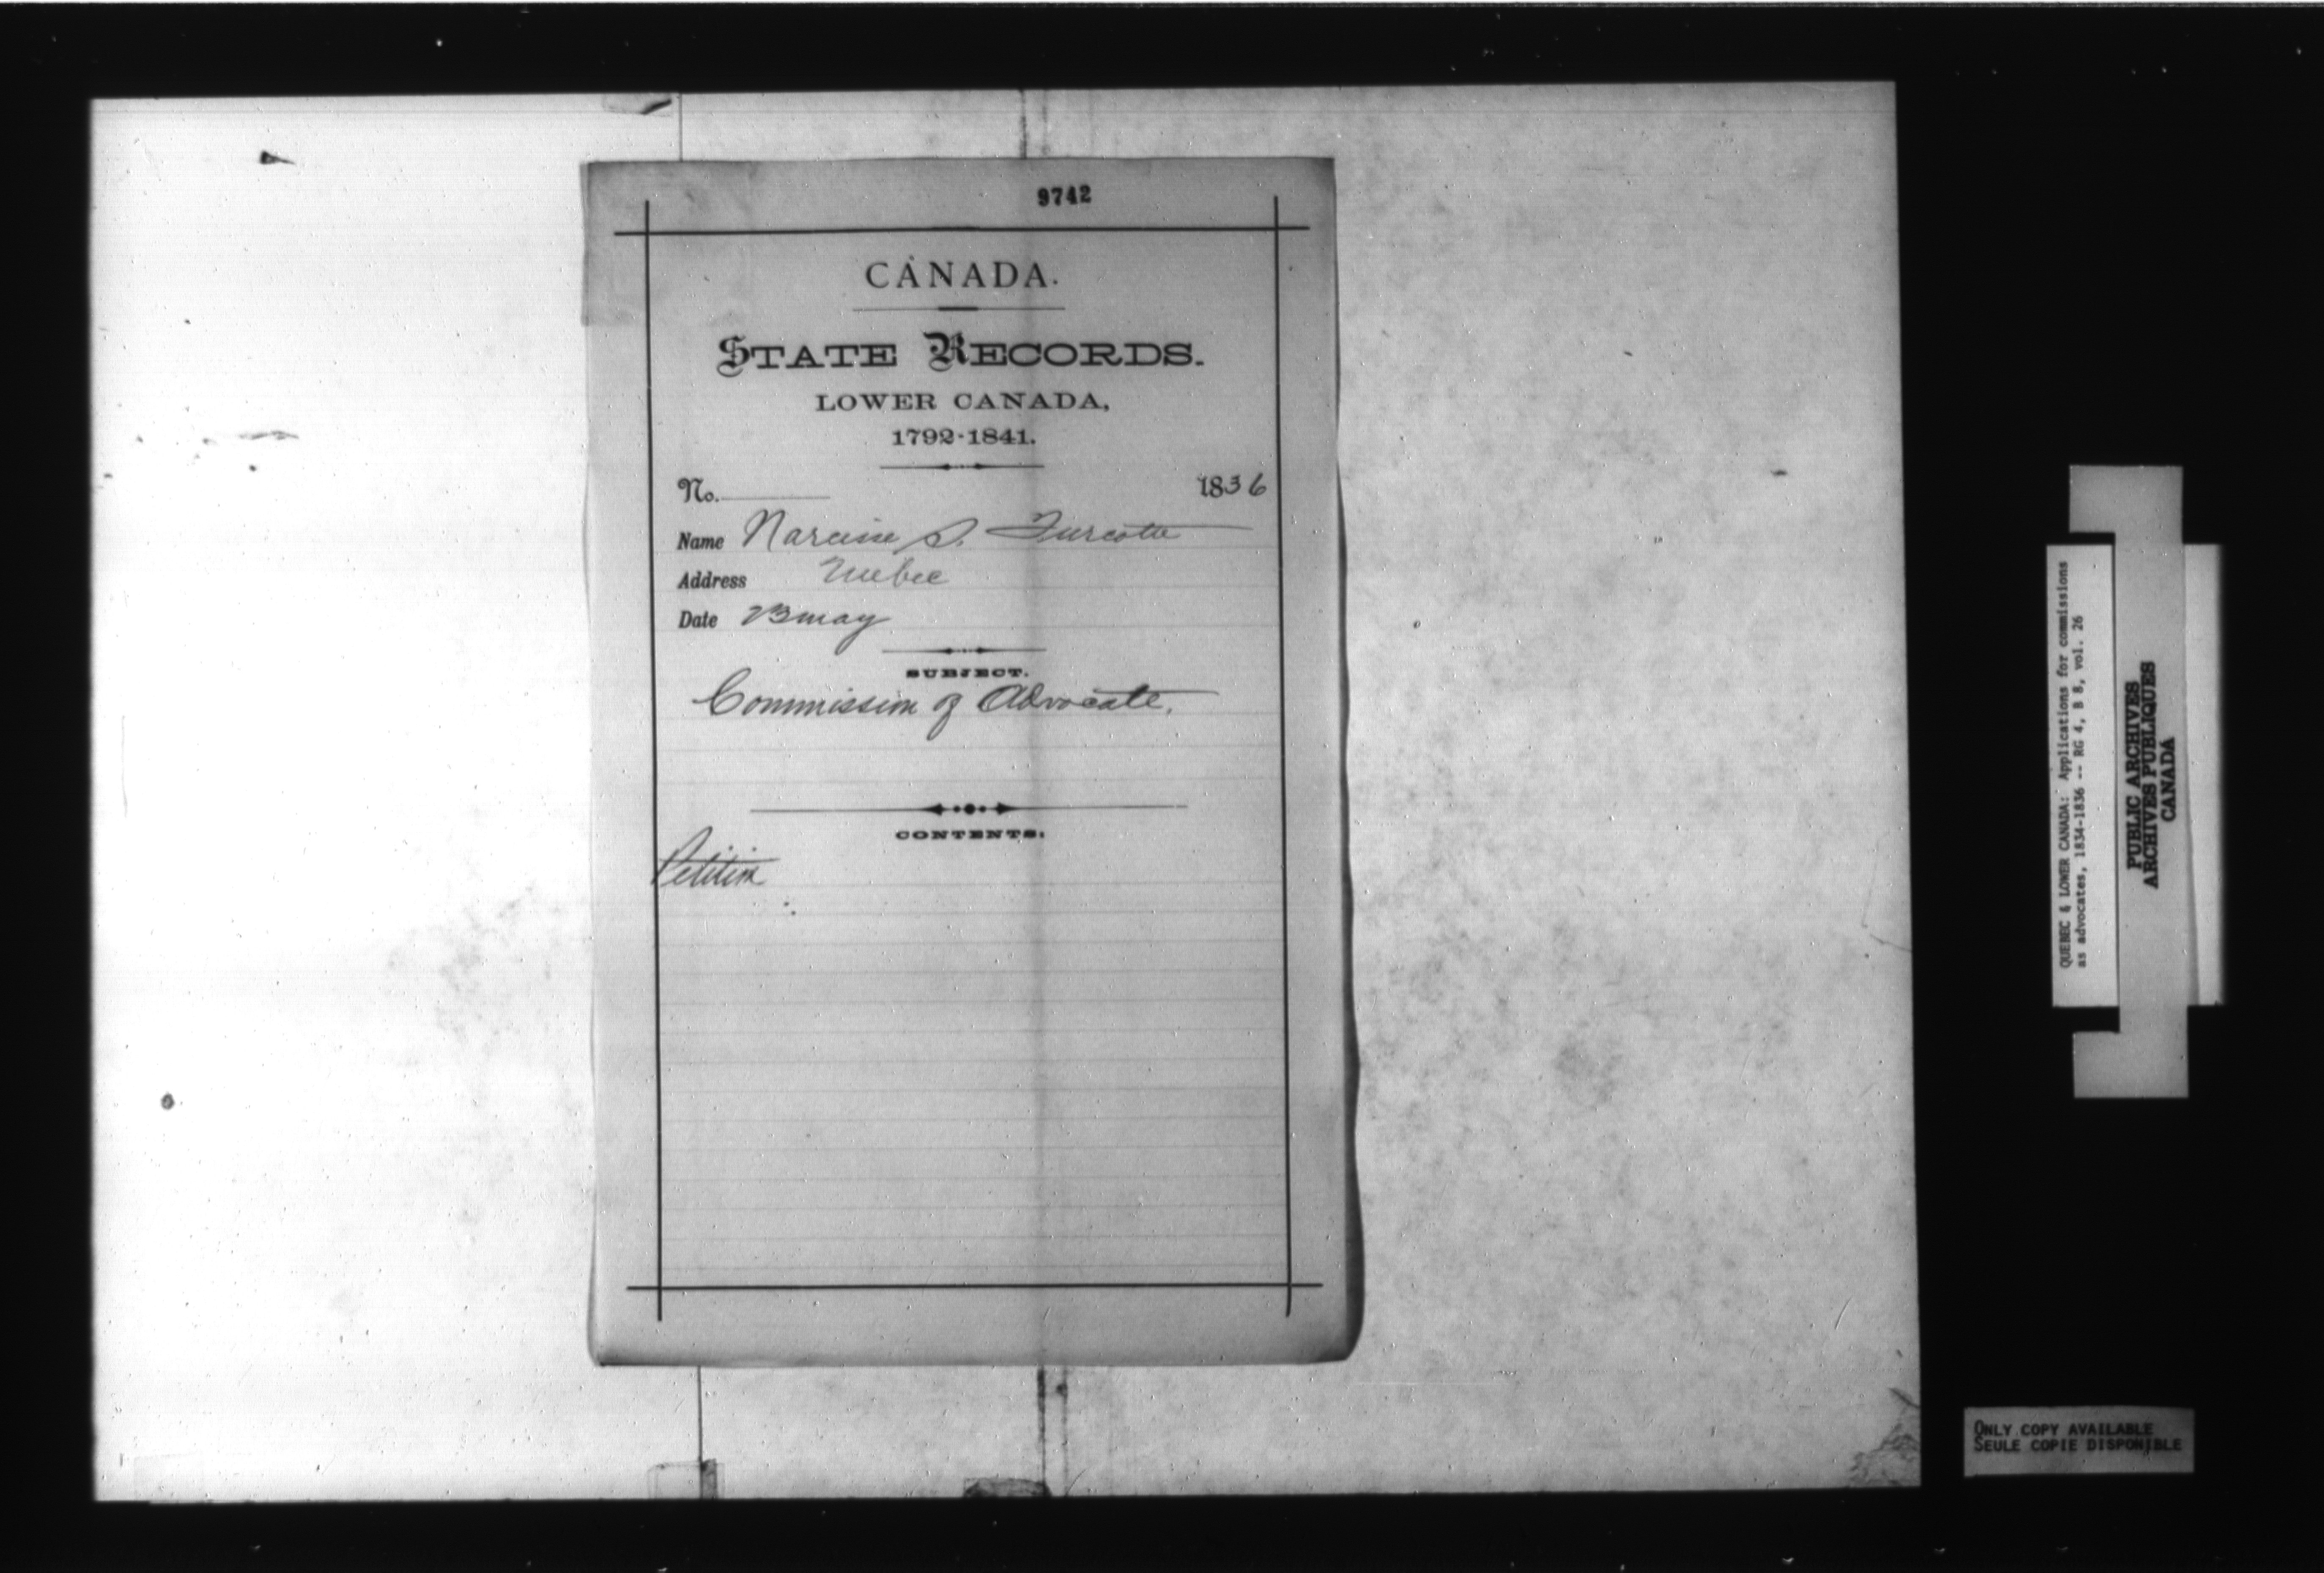 9742
CANADA.
STATE RECORDS.
LOWER CANADA,
1792-1841.
No. 1836
Name Narcisse S. Turcotte
Address Quebec
Date 23 may
SUBJECT.
Commission of Advocate.
CONTENTS.
Petition
QUEBEC & LOWER CANADA: Applications for commissions
as advocates, 1834-1836 -- RG 4, B 8, vol. 26
PUBLIC ARCHIVES
ARCHIVES PUBLIQUES
CANADA
ONLY COPY AVAILABLE
SEULE COPIE DISPONIBLE